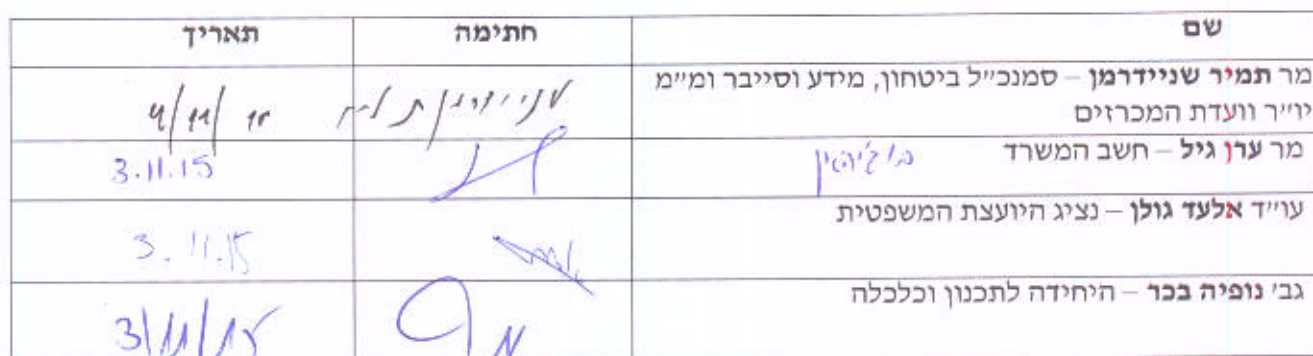 שם חתימה תאריך
מר תמיר שניידרמן – סמנכ״ל ביטחון, מידע וסייבר ומ״מ
יו״ר וועדת המכרזים
4/11/15
מר ערן גיל – חשב המשרד
3.11.15
עו״ד אלעד גולן – נציג היועצת המשפטית
3.11.15
גב׳ נופיה בכר – היחידה לתכנון וכלכלה
3/11/15